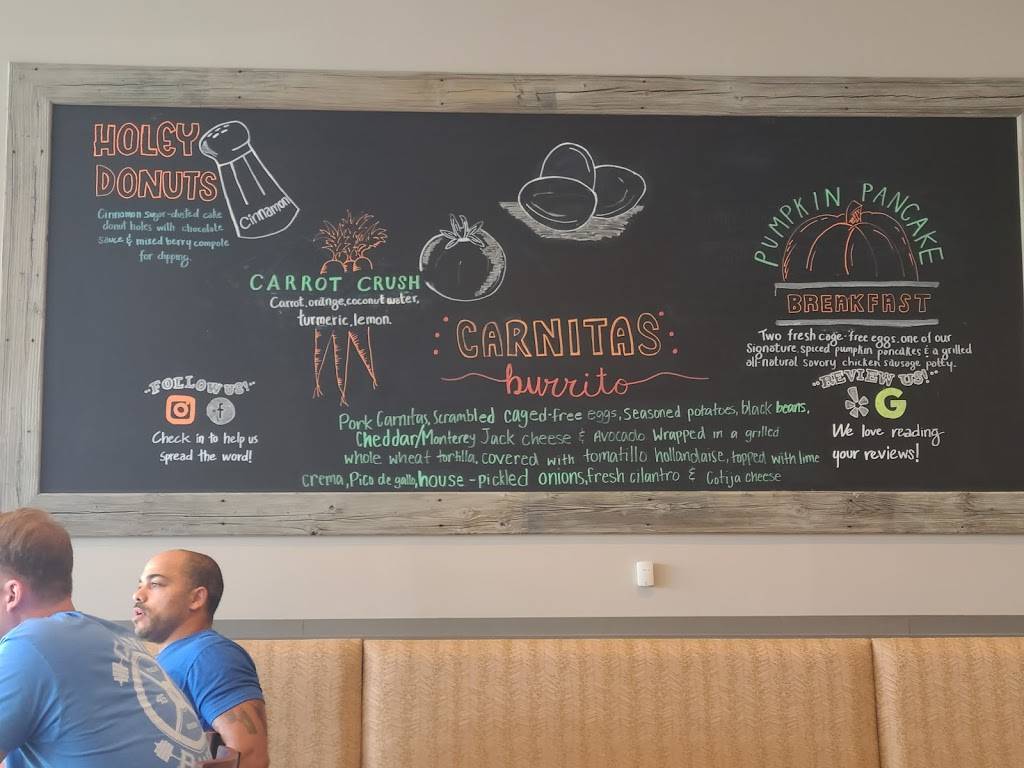 HOLEY
DONUTS
Cinnamon sugar-dusted cake
donut holes with chocolate
sauce & mixed berry compote
for dipping.
Cinnamon
CARROT CRUSH
Carrot, orange, coconut water,
turmeric, lemon.
CARNITAS
burrito
Pork Carnitas, Scrambled caged-free eggs, Seasoned potatoes, black beans,
Cheddar/Monterey Jack cheese & Avocado Wrapped in a grilled
whole wheat tortilla. covered with tomatillo hollandaise, topped with lime
crema, Pico de gallo, house-pickled onions, fresh cilantro & Cotija cheese
PUMPKIN PANCAKE
BREAKFAST
Two fresh cage-free eggs, one of our
Signature spiced pumpkin pancakes & a grilled
all-natural savory chicken sausage patty.
FOLLOW US!
f
Check in to help us
spread the word!
REVIEW US!
G
We love reading
your reviews!